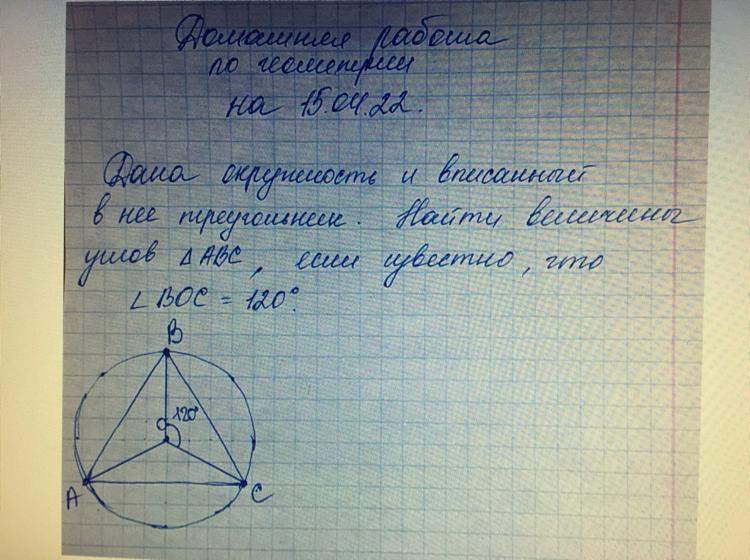 Домашняя работа
по геометрии
на 15.04.22.
Дана окружность и вписанный
в нее треугольник. Найти величины
углов △ABC, если известно, что
∠BOC = 120°.
B
O 120°
A
C